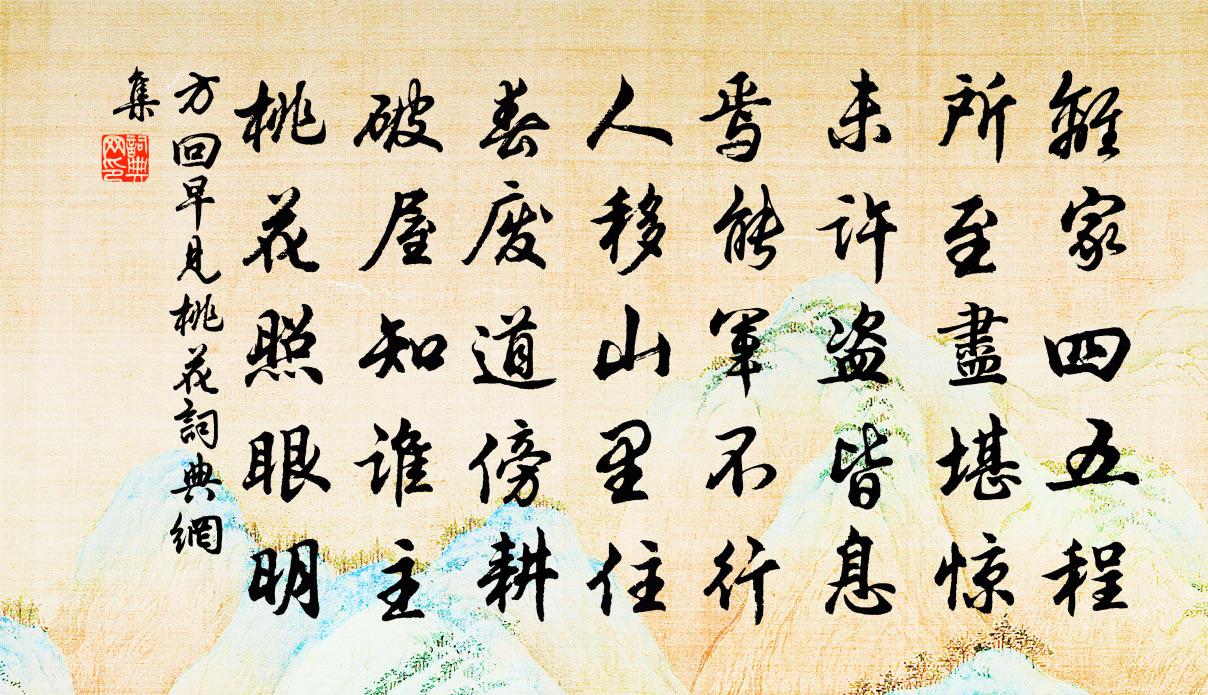 離家四五程
所至盡堪惊
未许盗皆息
焉能軍不行
人移山里住
春废道傍耕
破屋知谁主
桃花照眼明
方回早見桃花詞典網
集
詞典網印